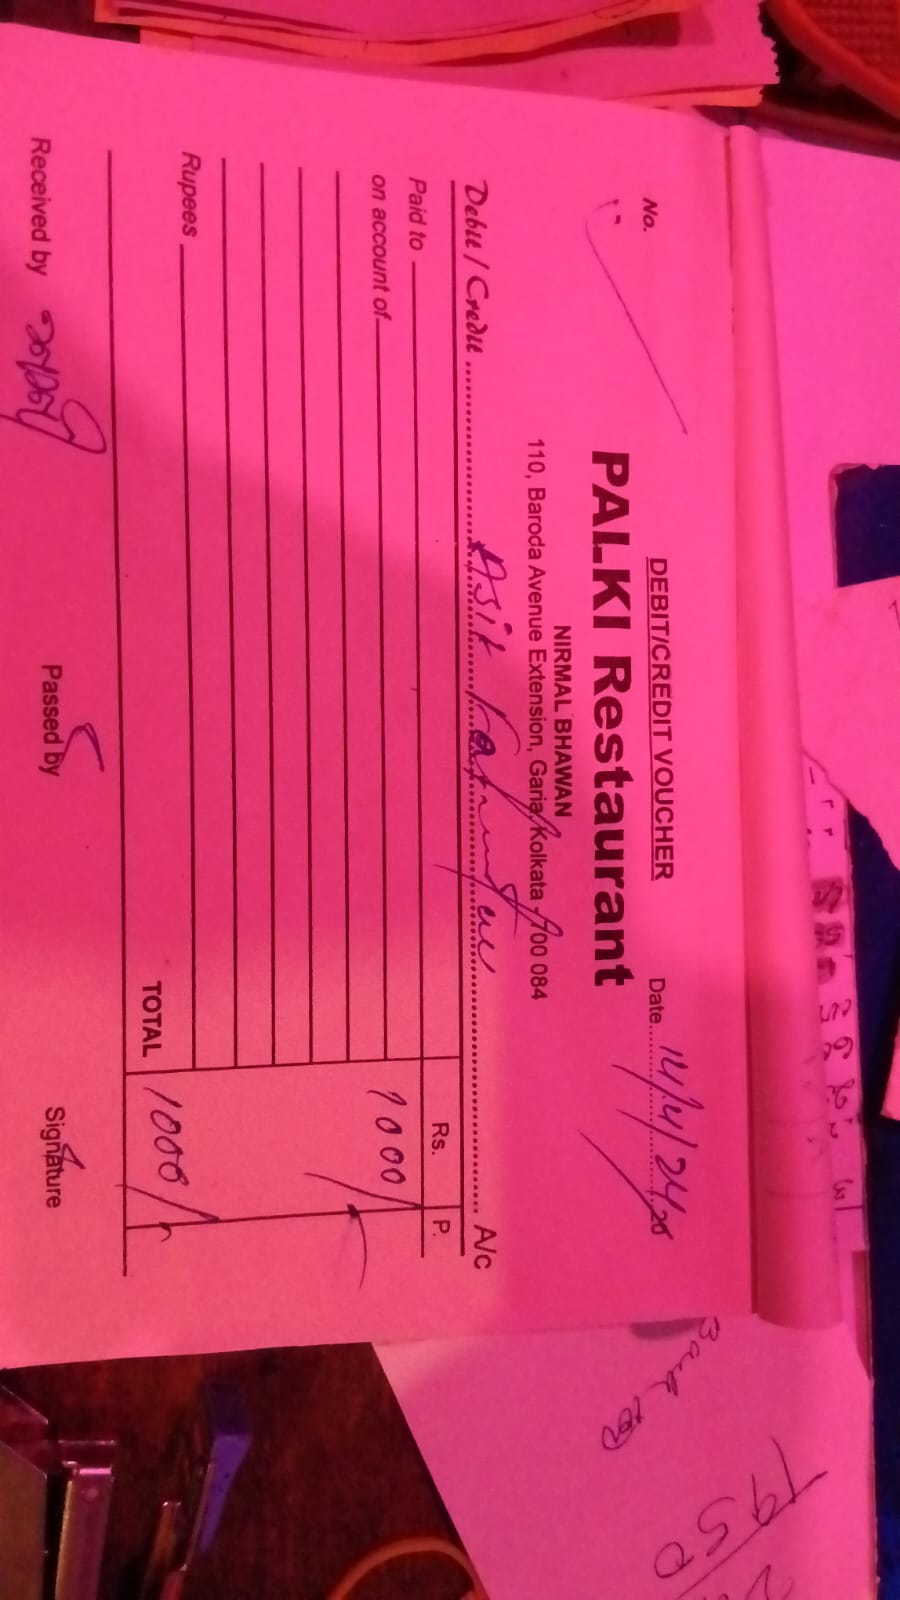 DEBIT/CREDIT VOUCHER
No.
Date 14/4/24
PALKI Restaurant
NIRMAL BHAWAN
110, Baroda Avenue Extension, Garia, Kolkata - 700 084
Debit / Credit Asit A/c
Rs. P.
Paid to
on account of 1000/-
Rupees
TOTAL 1000/-
Received by Passed by Signature
1950